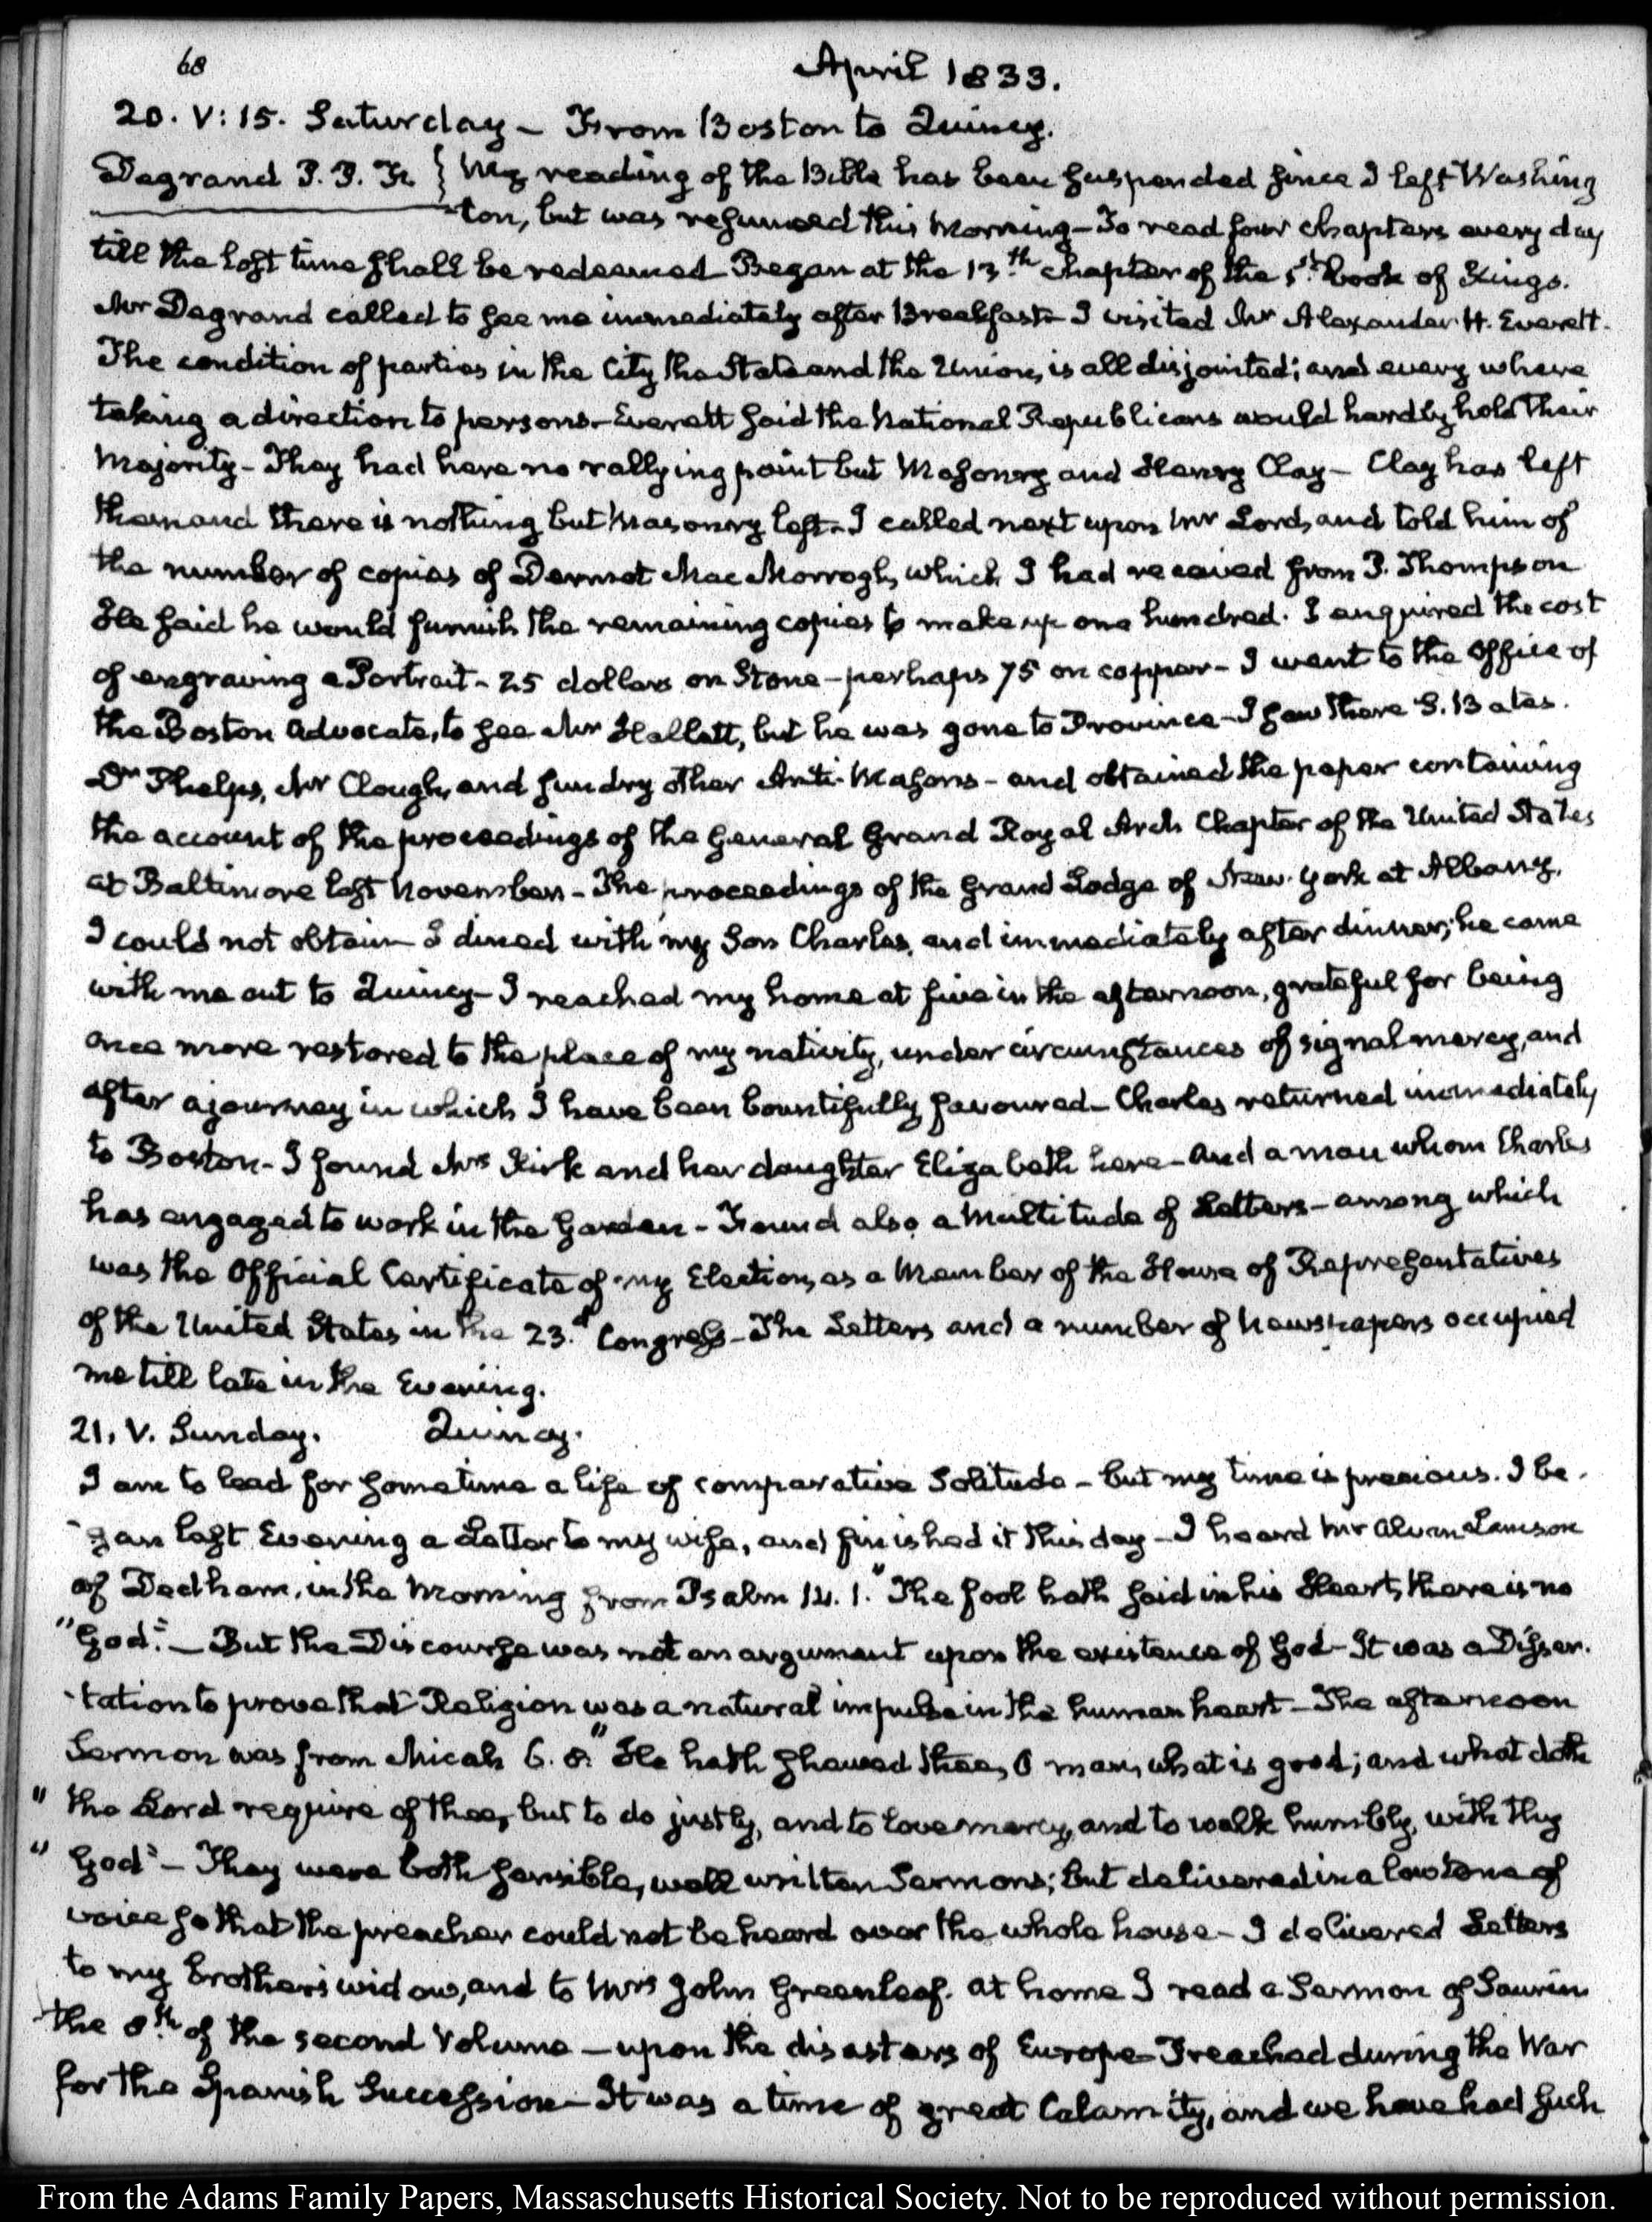 68
April 1833.
20. V:15. Saturday – From Boston to Quincy.
Degrand P. P. F. } My reading of the Bible has been suspended since I left Washing
ton, but was resumed this Morning – To read four chapters every day
till the lost time shall be redeemed Began at the 13.th Chapter of the 1.st book of Kings.
Mr Degrand called to see me immediately after Breakfast – I visited Mr Alexander H. Everett.
The condition of parties in the City the State and the Union, is all disjointed; and every where
taking a direction to persons – Everett said the National Republicans would hardly hold their
Majority – They had here no rallying point but Masonry and Henry Clay – Clay has left
them and there is nothing but Masonry left – I called next upon Mr Lord, and told him of
the number of copies of Dermot Mac Morrogh, which I had received from P. Thompson
He said he would furnish the remaining copies to make up one hundred. I enquired the cost
of engraving a Portrait – 25 dollars on Stone – perhaps 75 on copper – I went to the Office of
the Boston Advocate, to see Mr Hallett, but he was gone to Province – I saw there S. Bates.
Dr Phelps, Mr Clough, and sundry other Anti-Masons – and obtained the paper containing
the account of the proceedings of the General Grand Royal Arch Chapter of the United States
at Baltimore last November – The proceedings of the Grand Lodge of New-York at Albany,
I could not obtain – I dined with my Son Charles, and immediately after dinner, he came
with me out to Quincy – I reached my home at five in the afternoon, grateful for being
once more restored to the place of my nativity, under circumstances of signal mercy, and
after a journey in which I have been bountifully favoured – Charles returned immediately
to Boston – I found Mrs Kirk and her daughter Elizabeth here – And a man whom Charles
has engaged to work in the Garden – Found also a Multitude of Letters – among which
was the Official Certificate of my Election, as a Member of the House of Representatives
of the United States in the 23.d Congress – The Letters and a number of Newspapers occupied
me till late in the Evening.
21. V. Sunday. Quincy.
I am to lead for sometime a life of comparative Solitude – but my time is precious. I be-
-gan last Evening a Letter to my wife, and finished it this day – I heard Mr Alvan Lamson
of Dedham, in the Morning from Psalm 14. 1. "The fool hath said in his Heart, there is no
"God." – But the Discourse was not an argument upon the existence of God – It was a Disser-
-tation to prove that Religion was a natural impulse in the human heart – The afternoon
Sermon was from Micah 6. 8. "He hath shewed thee, O man, what is good; and what doth
" the Lord require of thee, but to do justly, and to love mercy, and to walk humbly, with thy
" God" – They were both sensible, well written Sermons; but delivered in a low tone of
voice so that the preacher could not be heard over the whole house – I delivered Letters
to my brother's widow, and to Mrs John Greenleaf. At home I read a Sermon of Saurin
the 8.th of the second Volume – upon the disasters of Europe – Preached during the War
for the Spanish Succession – It was a time of great Calamity, and we have had such
From the Adams Family Papers, Massaschusetts Historical Society. Not to be reproduced without permission.